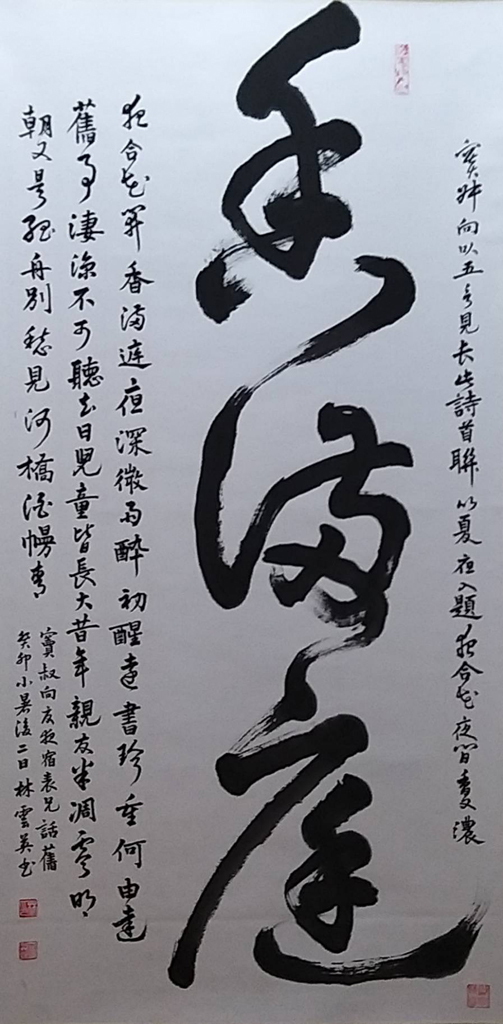 香滿庭
竇叔向以五言見長此詩首聯以夏夜入題夜合花夜間香更濃
夜合花開香滿庭夜深微雨醉初醒遠書珍重何由達
舊事淒涼不可聽去日兒童皆長大昔年親友半凋零明
朝又是孤舟別愁見河橋酒幔青
竇叔向 夏夜宿表兄話舊
癸卯小暑後二日林雲英書